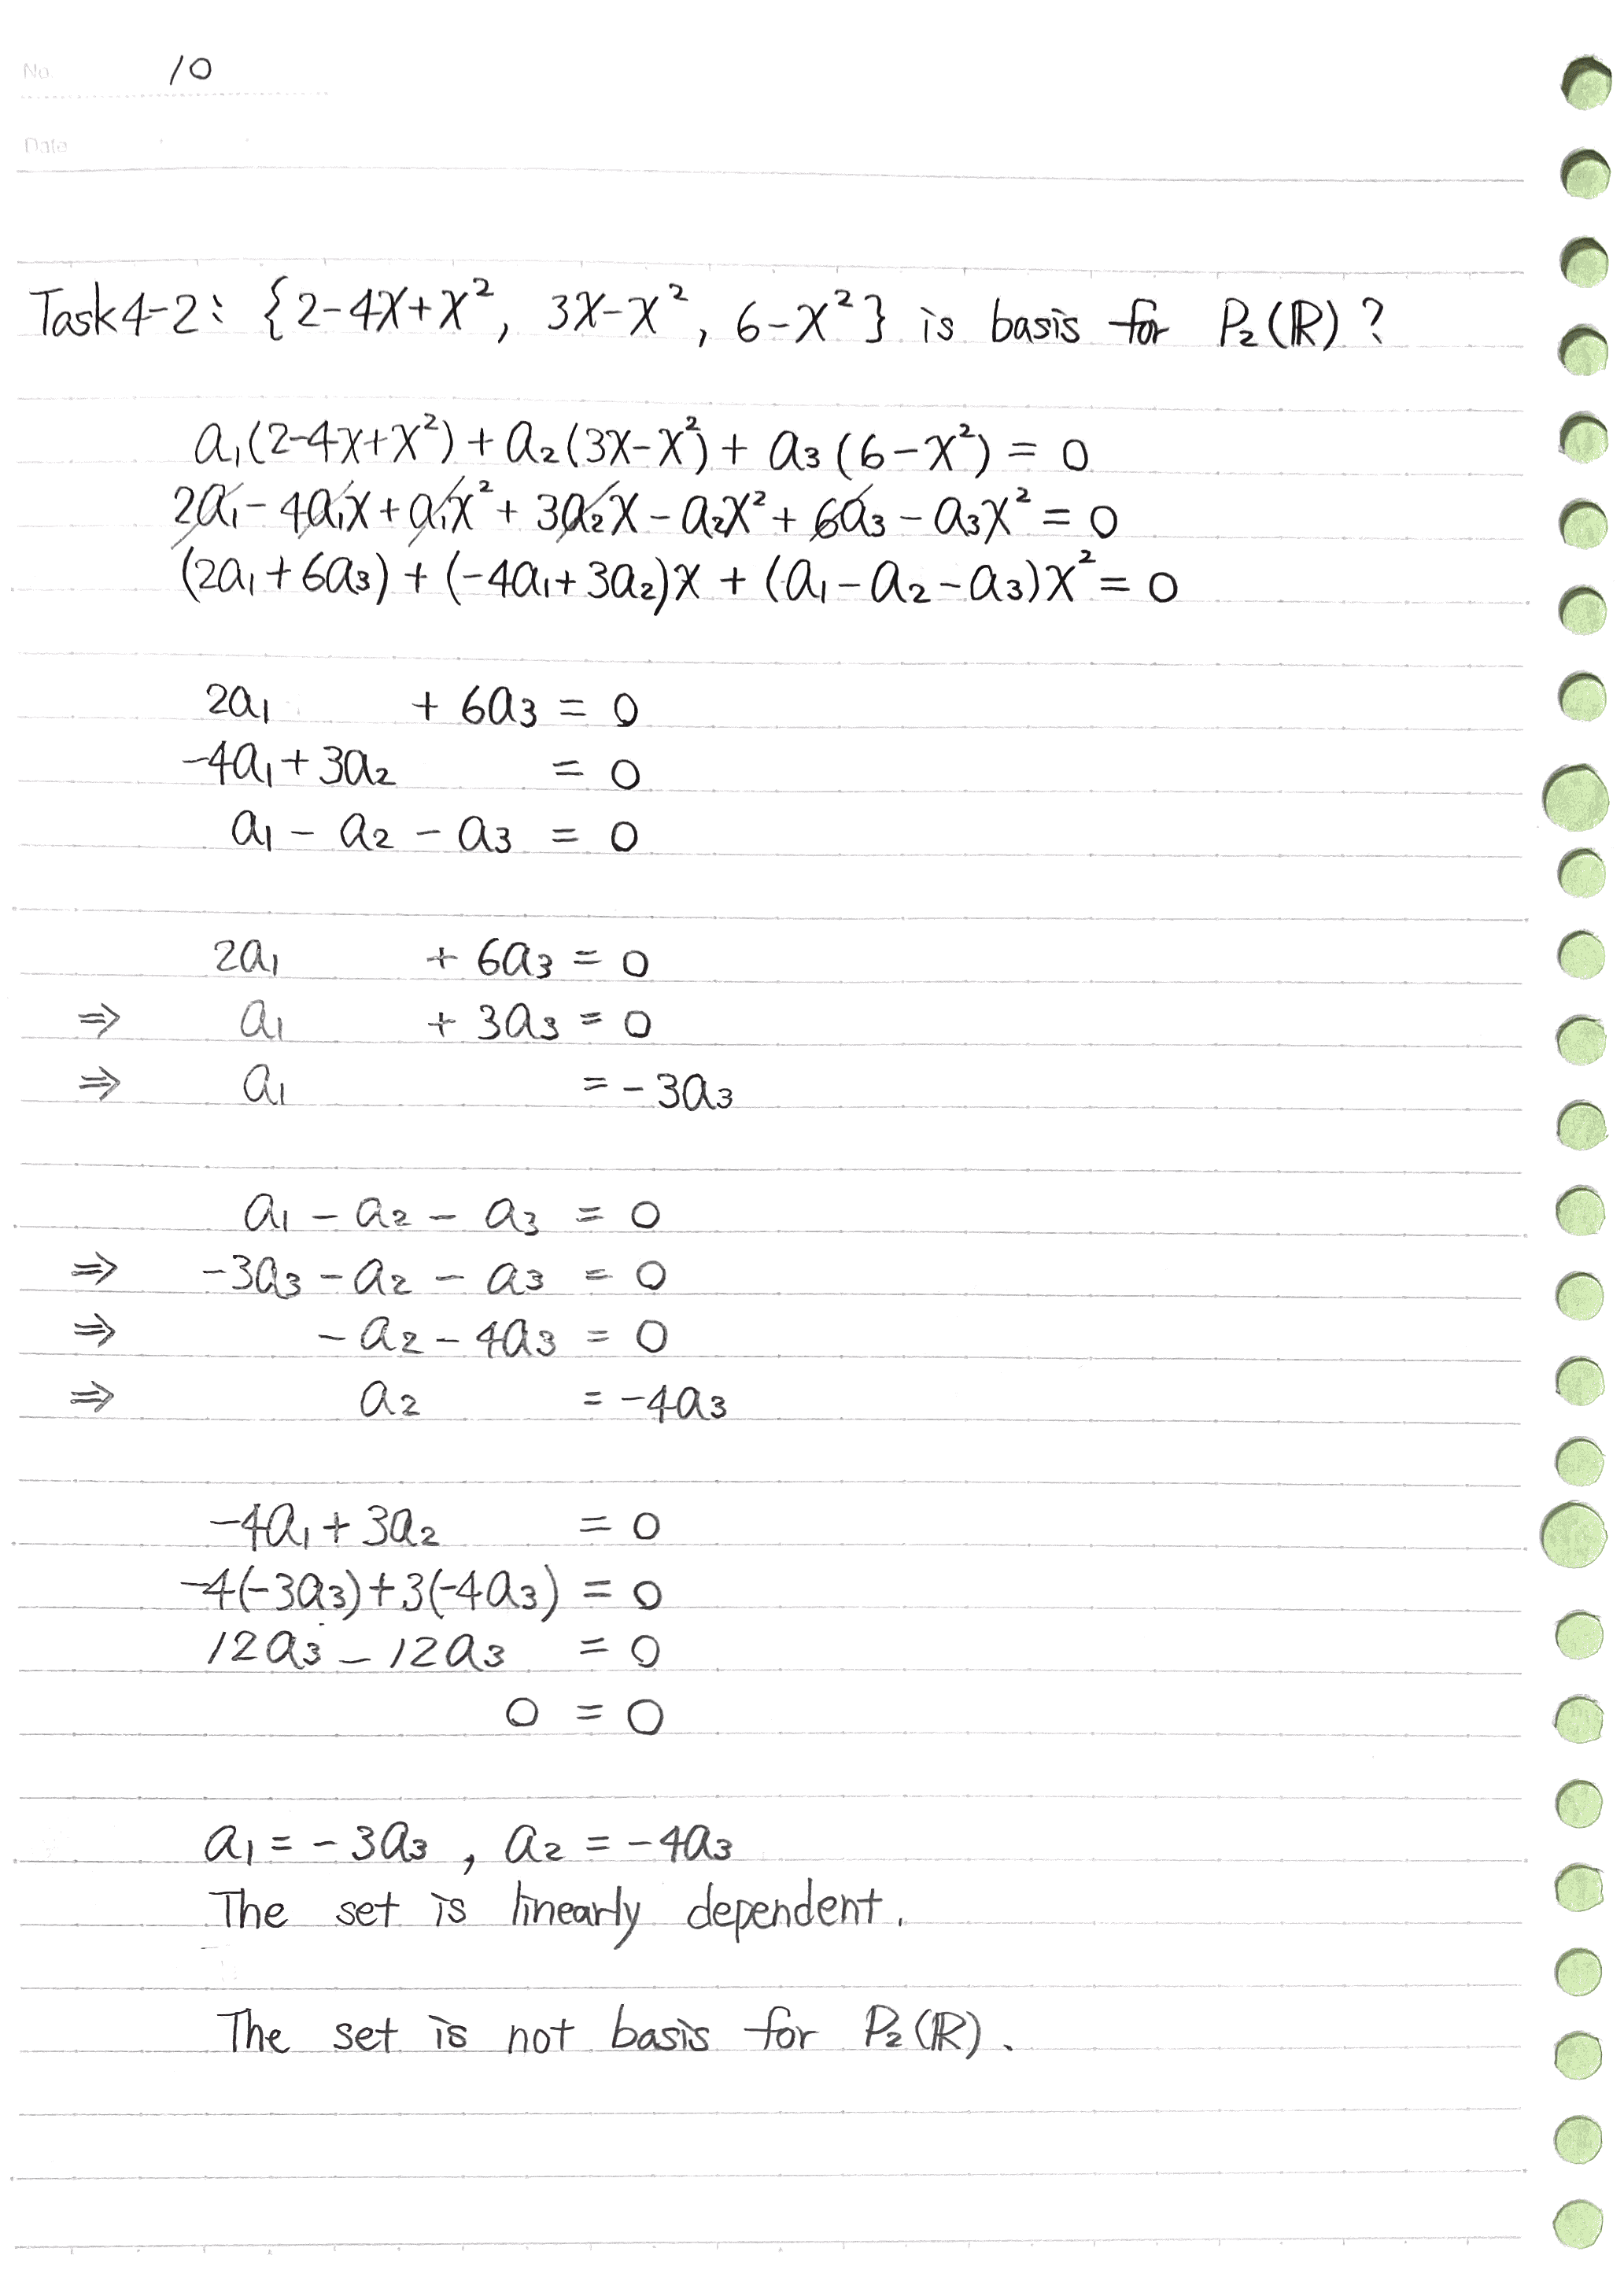 No. 10
Date
Task 4-2: {2-4x+x², 3x-x², 6-x²} is basis for P₂(ℝ)?
a₁(2-4x+x²) + a₂(3x-x²) + a₃(6-x²) = 0
2a₁ - 4a₁x + a₁x² + 3a₂x - a₂x² + 6a₃ - a₃x² = 0
(2a₁+6a₃) + (-4a₁+3a₂)x + (a₁-a₂-a₃)x² = 0
2a₁ + 6a₃ = 0
-4a₁ + 3a₂ = 0
a₁ - a₂ - a₃ = 0
2a₁ + 6a₃ = 0
⇒ a₁ + 3a₃ = 0
⇒ a₁ = -3a₃
a₁ - a₂ - a₃ = 0
⇒ -3a₃ - a₂ - a₃ = 0
⇒ -a₂ - 4a₃ = 0
⇒ a₂ = -4a₃
-4a₁ + 3a₂ = 0
-4(-3a₃)+3(-4a₃) = 0
12a₃ - 12a₃ = 0
0 = 0
a₁ = -3a₃ , a₂ = -4a₃
The set is linearly dependent.
The set is not basis for P₂(ℝ).